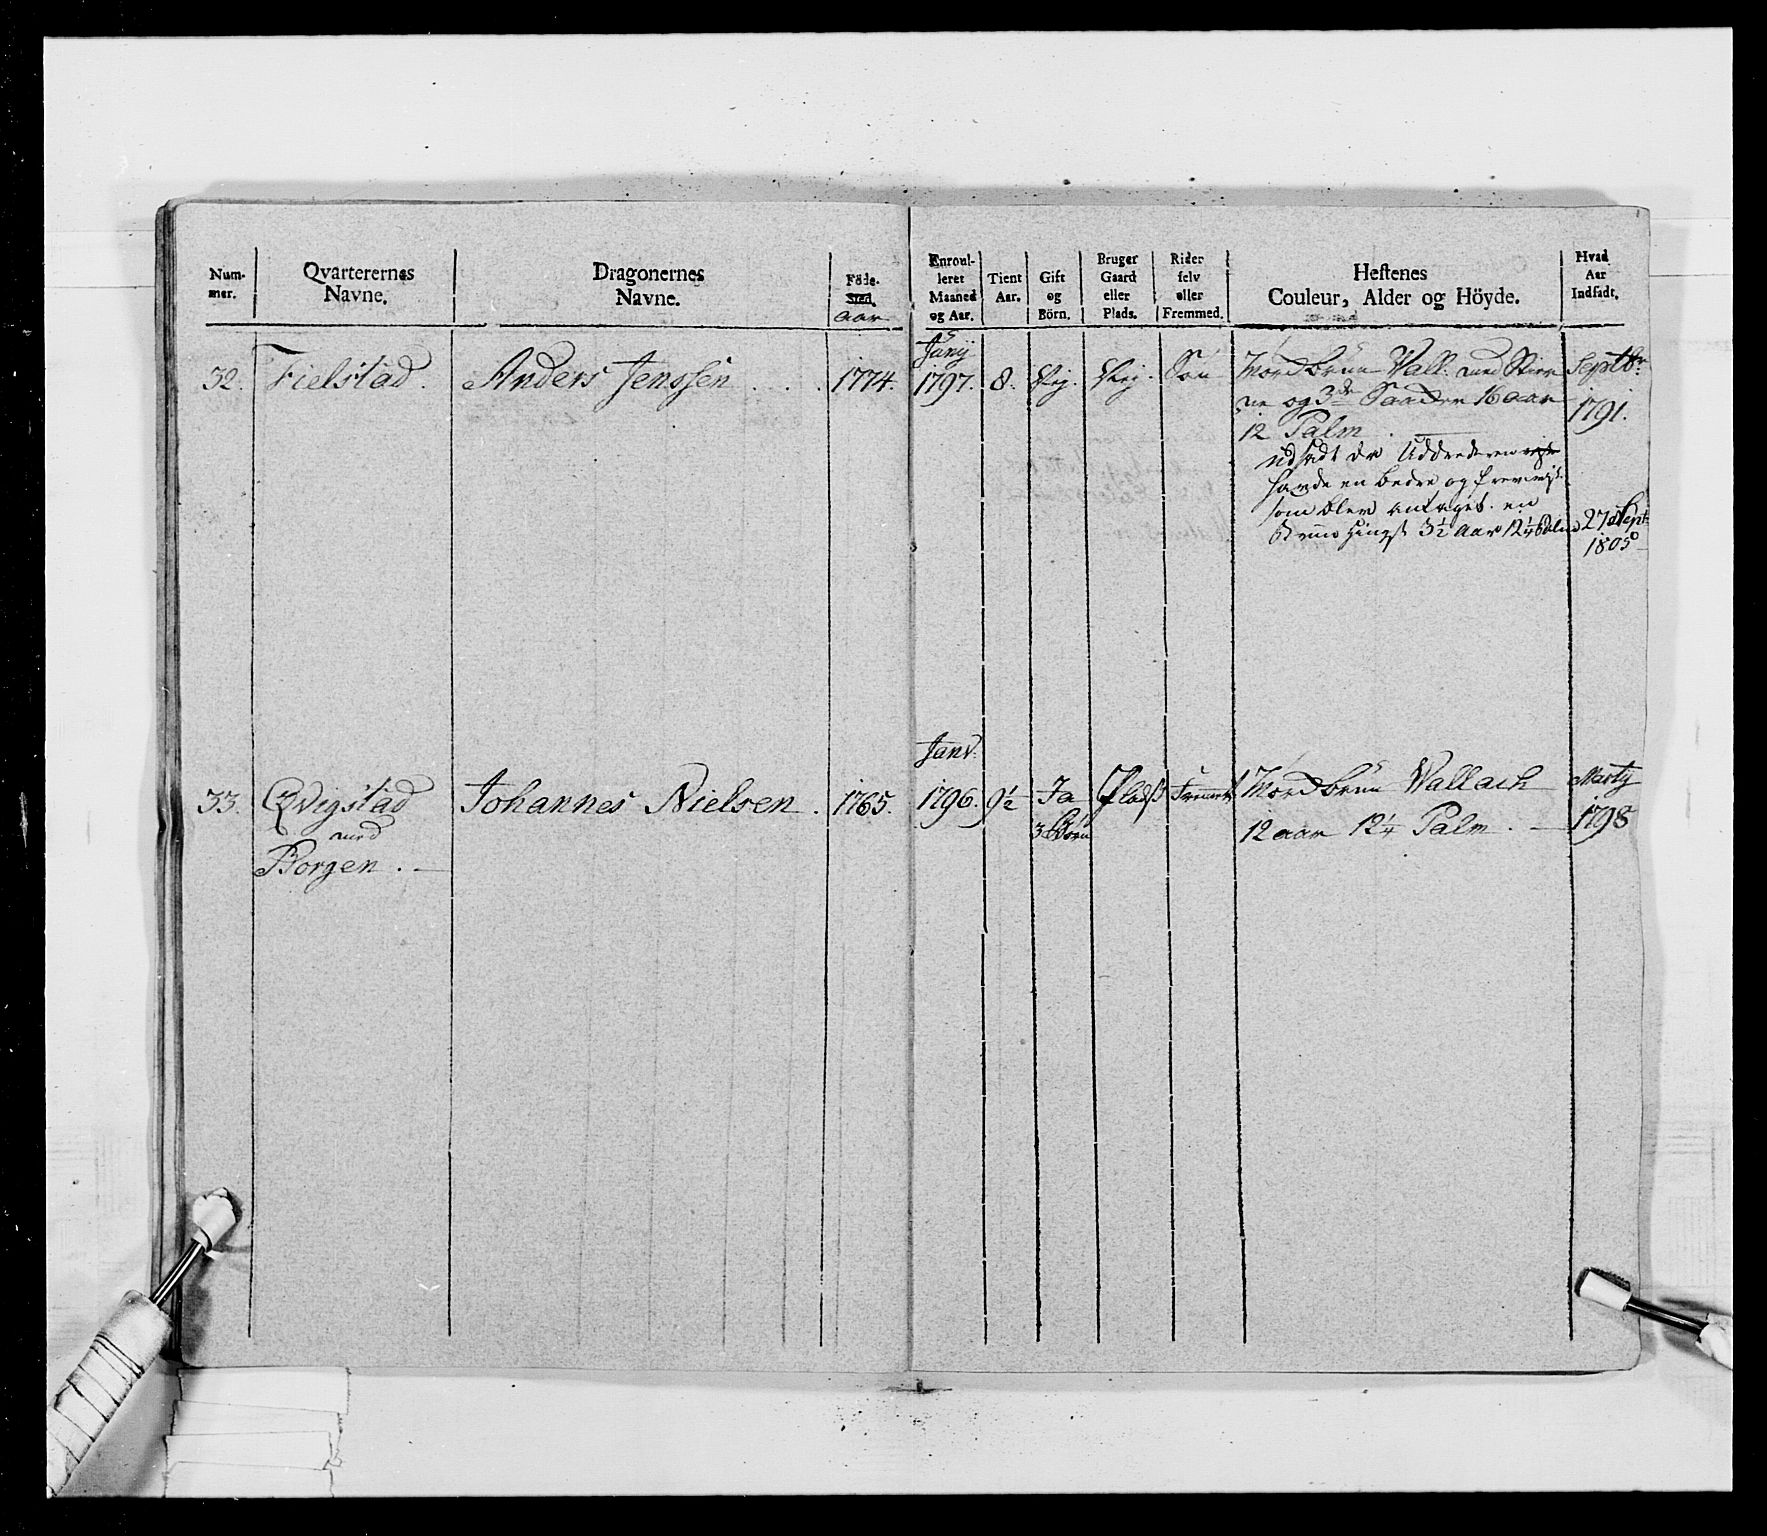 Num-
mer.
Qvarterernes
Navne.
Dragonernes
Navne.
Föde-
Sted.
Aar
Enroul-
leret
Maaned
og Aar.
Tient
Aar.
Gift
og
Börn.
Bruger
Gaard
eller
Plads.
Rider
selv
eller
Fremmed.
Hestenes
Couleur, Alder og Höyde.
Hvad
Aar
Indsadt.
32. Fielstad. Anders Jenssen . . . 1774.
Junij
1797. 8. Nej. Nej. Søn
Mordbrun Vall. med Stier
ne og 3de Saadn 16 aar
12 Palm . —
udsadt da Udrederen
havde en bedre og
som blev antaget. en
Brun Hingst 3½ Aar 12¼ Palm
Septbr.
1791.
27 Sept
1805
33. Qvigstad
med
Borgen . —
Johannes Nielsen . 1765.
Janv.
1796. 9½ Ja
3 Börn
Pladß Fremmed
Mordbrun Wallach
12 aar 12¼ Palm . —
Marty
1798